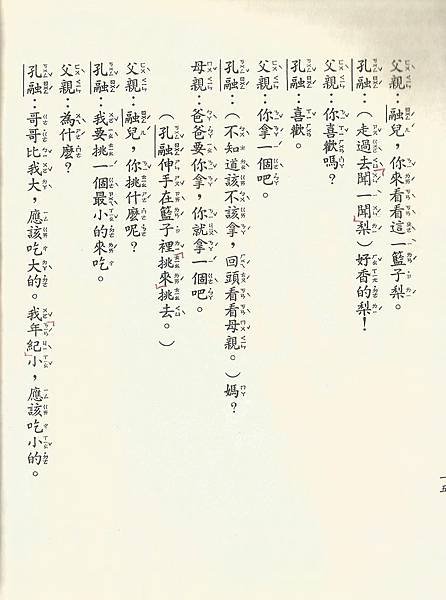 父親：融兒，你來看看這一籃子梨。
孔融：（走過去聞一聞梨）好香的梨！
父親：你喜歡嗎？
孔融：喜歡。
父親：你拿一個吧。
孔融：（不知道該不該拿，回頭看看母親。）媽？
母親：爸爸要你拿，你就拿一個吧。
（孔融伸手在籃子裡挑來挑去。）
父親：融兒，你挑什麼呢？
孔融：我要挑一個最小的來吃。
父親：為什麼？
孔融：哥哥比我大，應該吃大的。我年紀小，應該吃小的。
一五